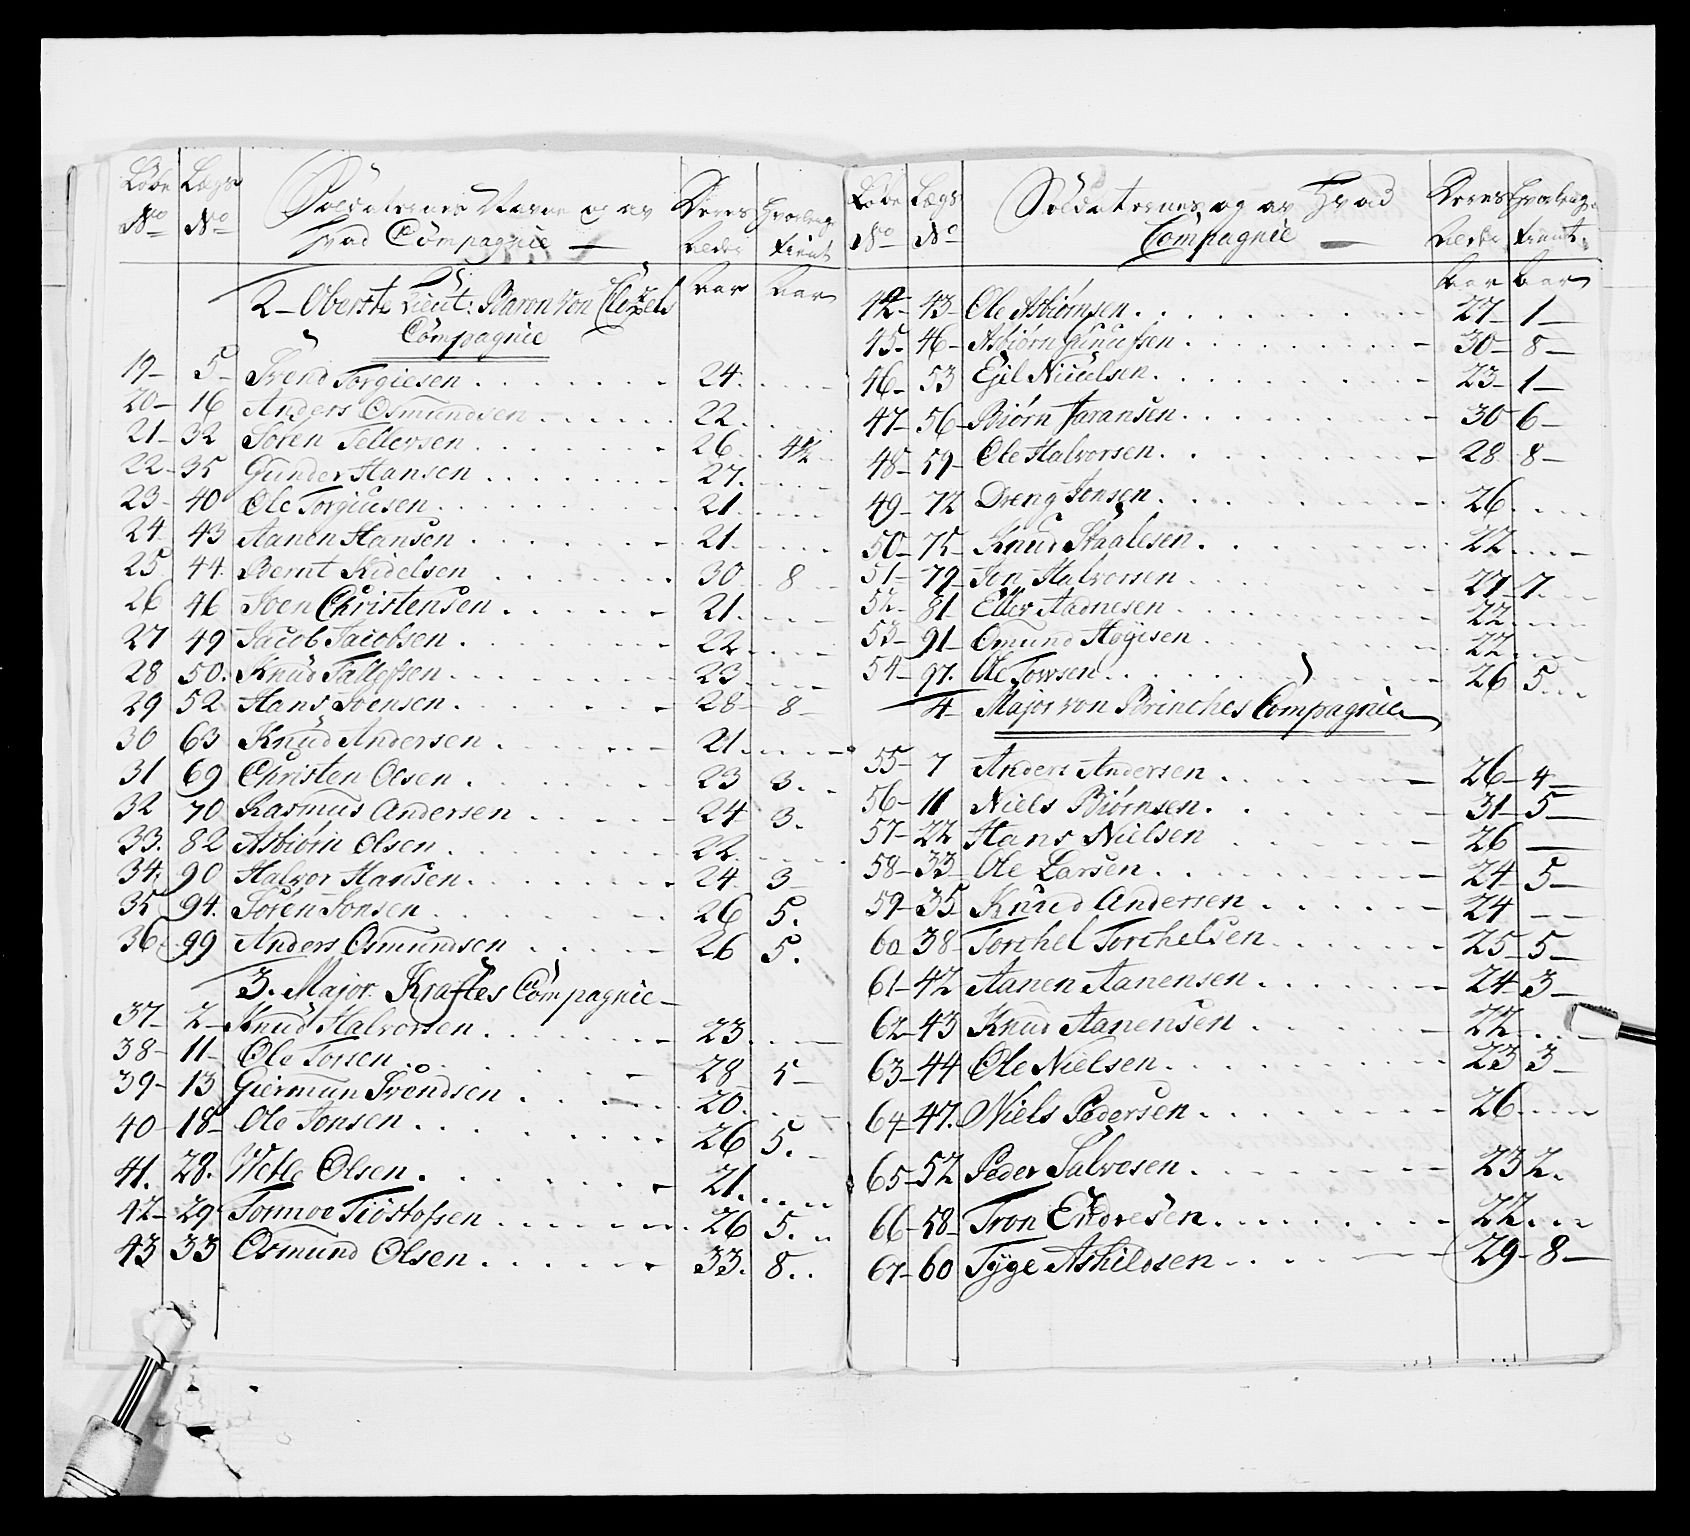 Løbe No Lægs No Soldaternes Navne og av Hvad Compagnie Deres Alder Aar Hvorlenge tient Aar
2 Oberste Lieut: Baron von
Compagnie
19 5 Svend Torgiesen 24
20 16 Anders Osmundsen 22
21 32 Sören Tellevsen 26 4½
22 35 Gunder Hansen 27
23 40 Ole Torgiusen 21
24 43 Aanen Hansen 21
25 44 Bernt Kidelsen 30 8
26 46 Soen Christensen 21
27 49 Jacob Jacobsen 22
28 50 Knud Tallefsen 23
29 52 Hans Svensen 28 8
30 63 Knud Andersen 21
31 69 Christen Olsen 23 3
32 70 Rasmus Andersen 24 3
33 82 Asbiörn Olsen 22
34 90 Halvor Hansen 24 3
35 94 Sören Jonsen 26 5
36 99 Anders Osmundsen 26 5
3. Major Kraftes Compagnie
37 2 Knud Halvorsen 23
38 11 Ole Torsen 28 5
39 13 Giermun Svendsen 20
40 18 Ole Jonsen 26 5
41 28 Wetle Olsen 21
42 29 Tormoe Tiöstofsen 26 5
43 33 Osmund Olsen 33 8
Løbe No Lægs No Soldaternes og av Hvad Compagnie Deres Alder Aar Hvorlenge tient Aar
44 43 Ole Asbiörnsen 27 1
45 46 Asbiörn 30 8
46 53 Ejel Nielsen 23 1
47 56 Biørn Taransen 30 6
48 59 Ole Halvorsen 28 8
49 72 Dreng Jonsen 26
50 75 Knud Staalesen 22
51 79 Jon Halvorsen 27 7
52 81 Eller Aadnesen 22
53 91 Omund Høyisen 22
54 97 Ole 26 5
4 Major von Brinches Compagnie
55 7 Anders Andersen 26 4
56 11 Niels Biørnsen 31 5
57 22 Hans Nielsen 26
58 33 Ole Larsen 24 5
59 35 Knud Andersen 24
60 38 Torchel Torchelsen 25 5
61 42 Aanen Aanensen 24 3
62 43 Knud Aanensen 22
63 44 Ole Nielsen 23 3
64 47 Niels Pedersen 26
65 52 Peder Salvesen 23 2
66 58 Tron Endresen 22
67 60 Tyge Askildsen 29 8